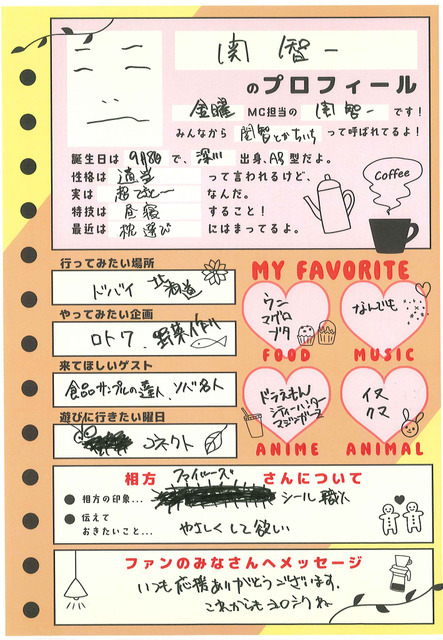 関智一
のプロフィール
金曜 MC担当の 関智一 です!
みんなから 関智とかちいち って呼ばれてるよ!
誕生日は 9月8日 で、深川 出身、AB型だよ。
性格は 適当 って言われるけど、
実は 超てきとー なんだ。
特技は 昼寝 すること!
最近は 枕選び にはまってるよ。
Coffee
行ってみたい場所
ドバイ 北海道
やってみたい企画
ロトワ、野菜
来てほしいゲスト
食品サンプルの達人、ソバ名人
遊びに行きたい曜日
コネクト
MY FAVORITE
ウニ
マグロ
ブタ
FOOD
なんでも
MUSIC
ドラえもん
シティーハンター
マジンガーZ
ANIME
イヌ
クマ
ANIMAL
相方 ファイルーズ さんについて
相方の印象... シール職人
伝えて
おきたいこと... やさしくして欲しい
ファンのみなさんへメッセージ
いつも応援ありがとうございます。
これからもヨロシクね